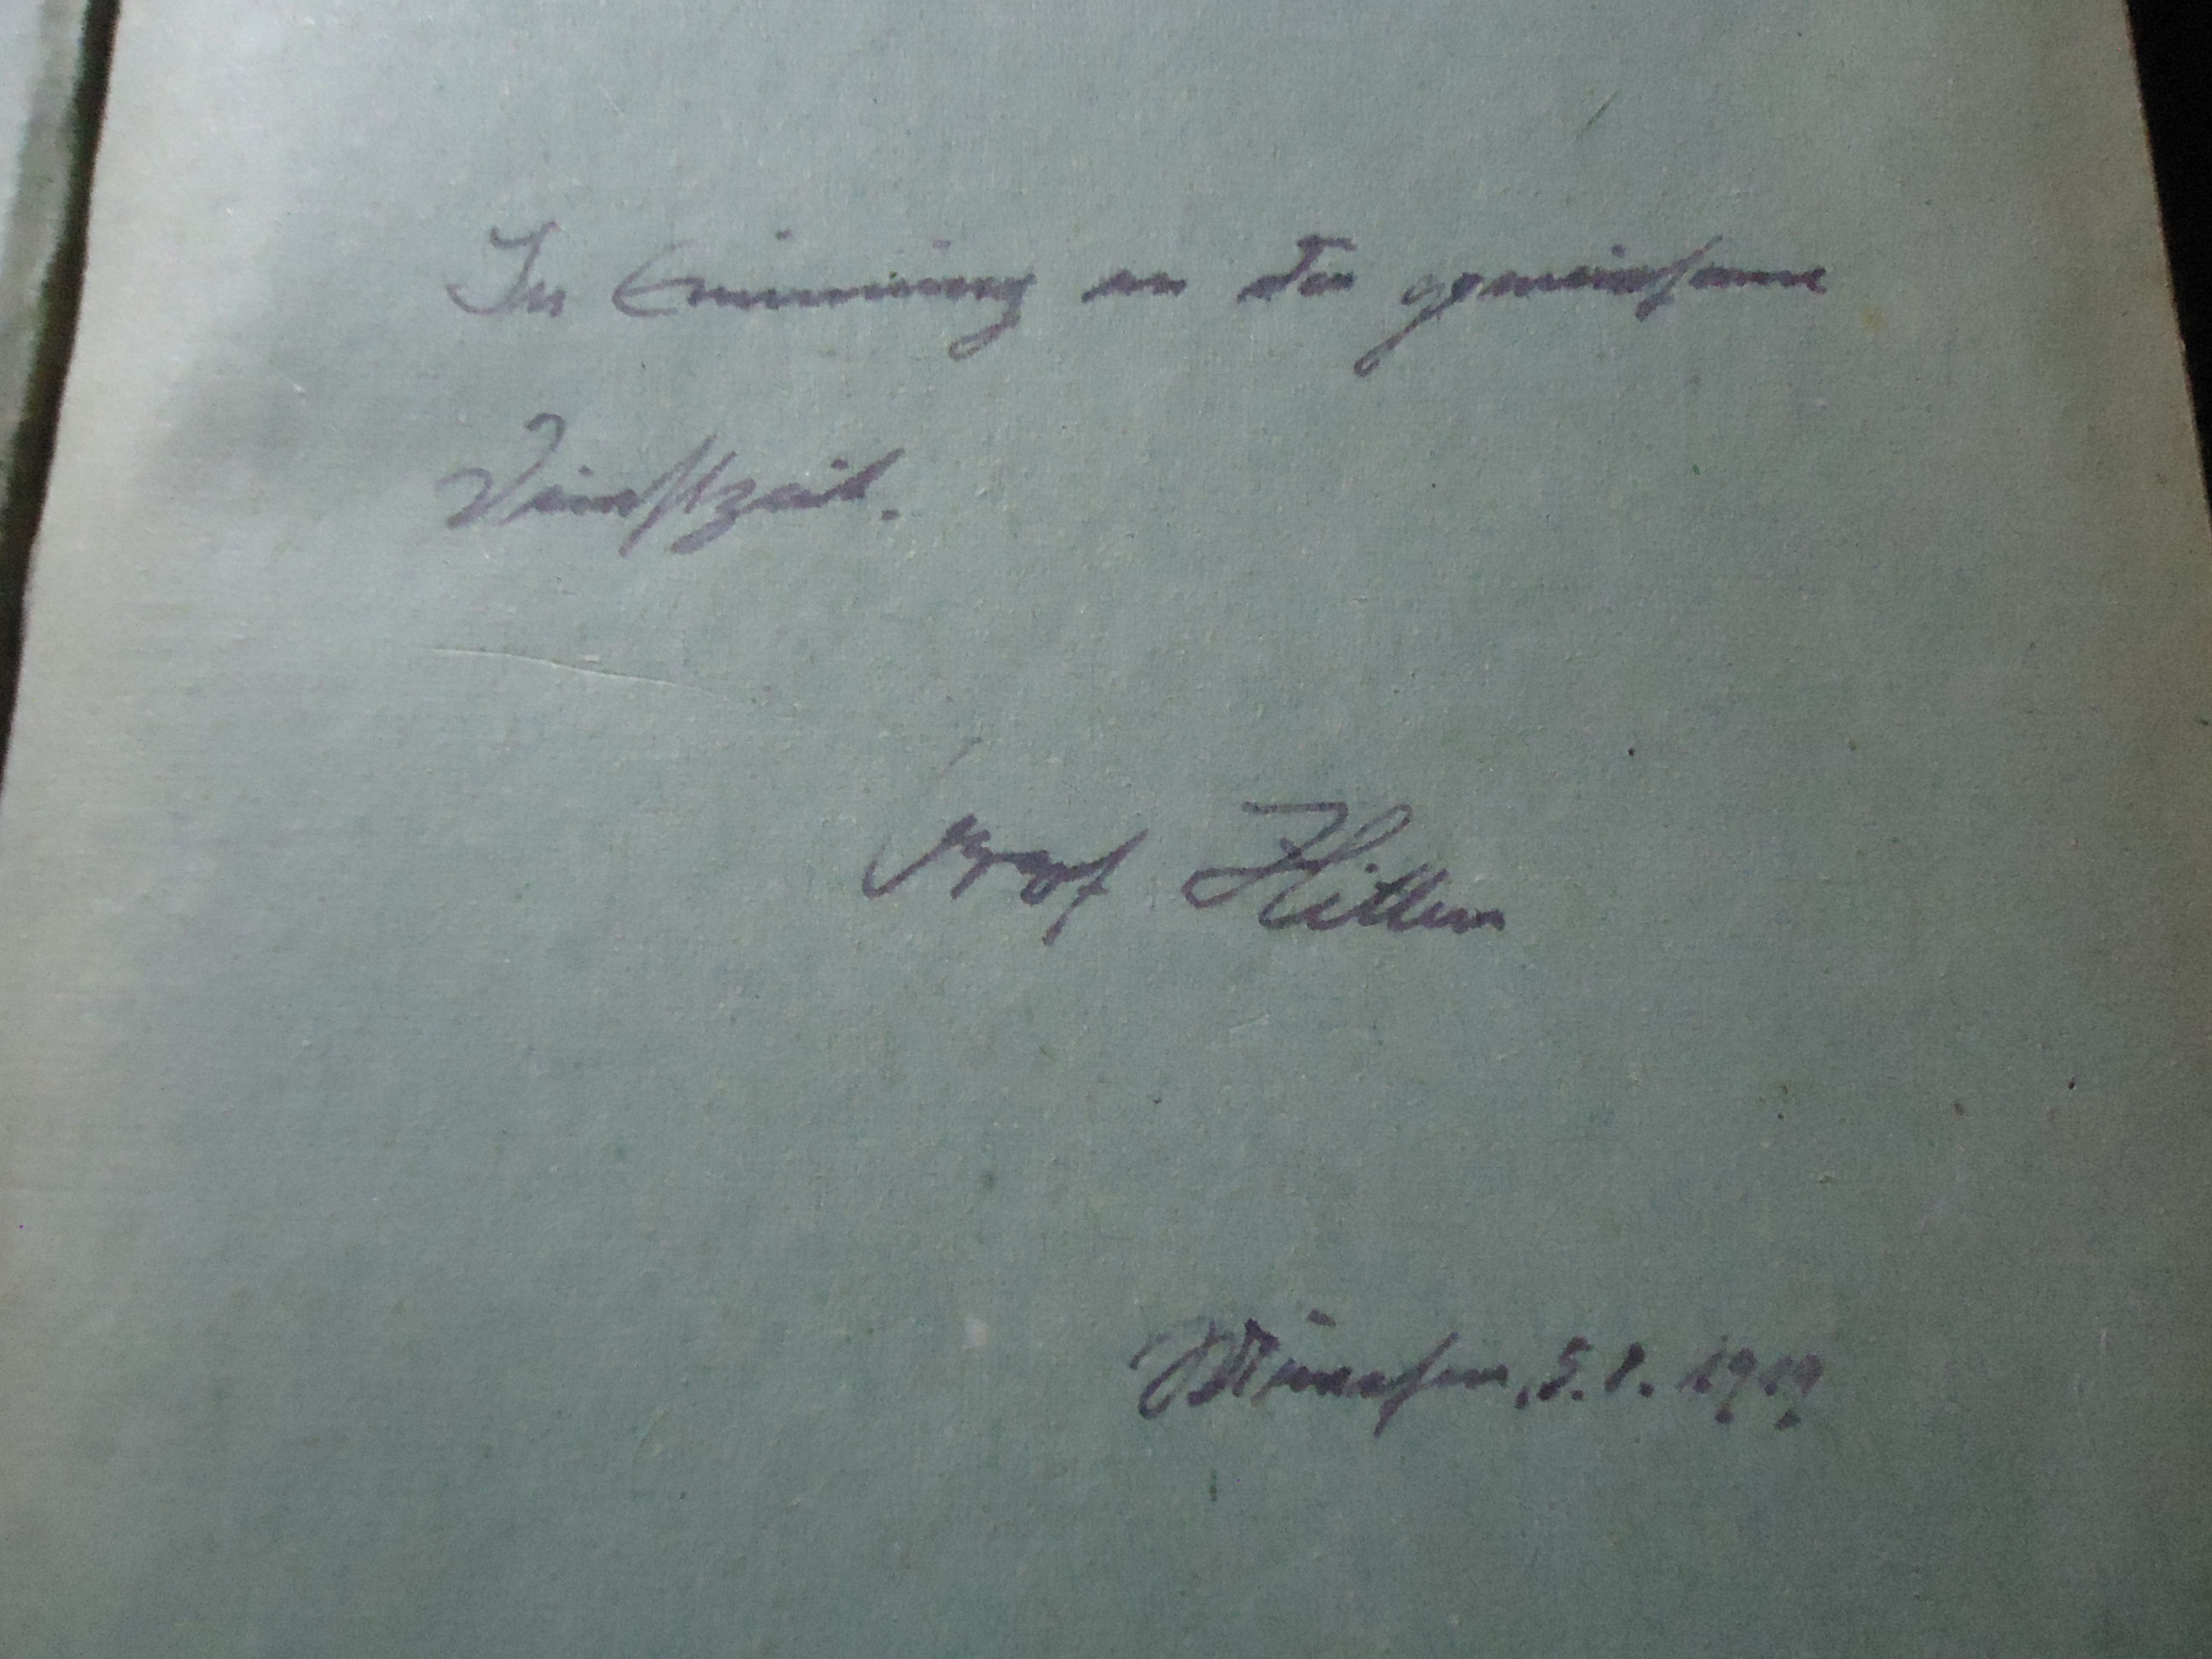 In Erinnerung an die gemeinsame
Dienstzeit.
Adolf Hitler
München, 5.8.1919